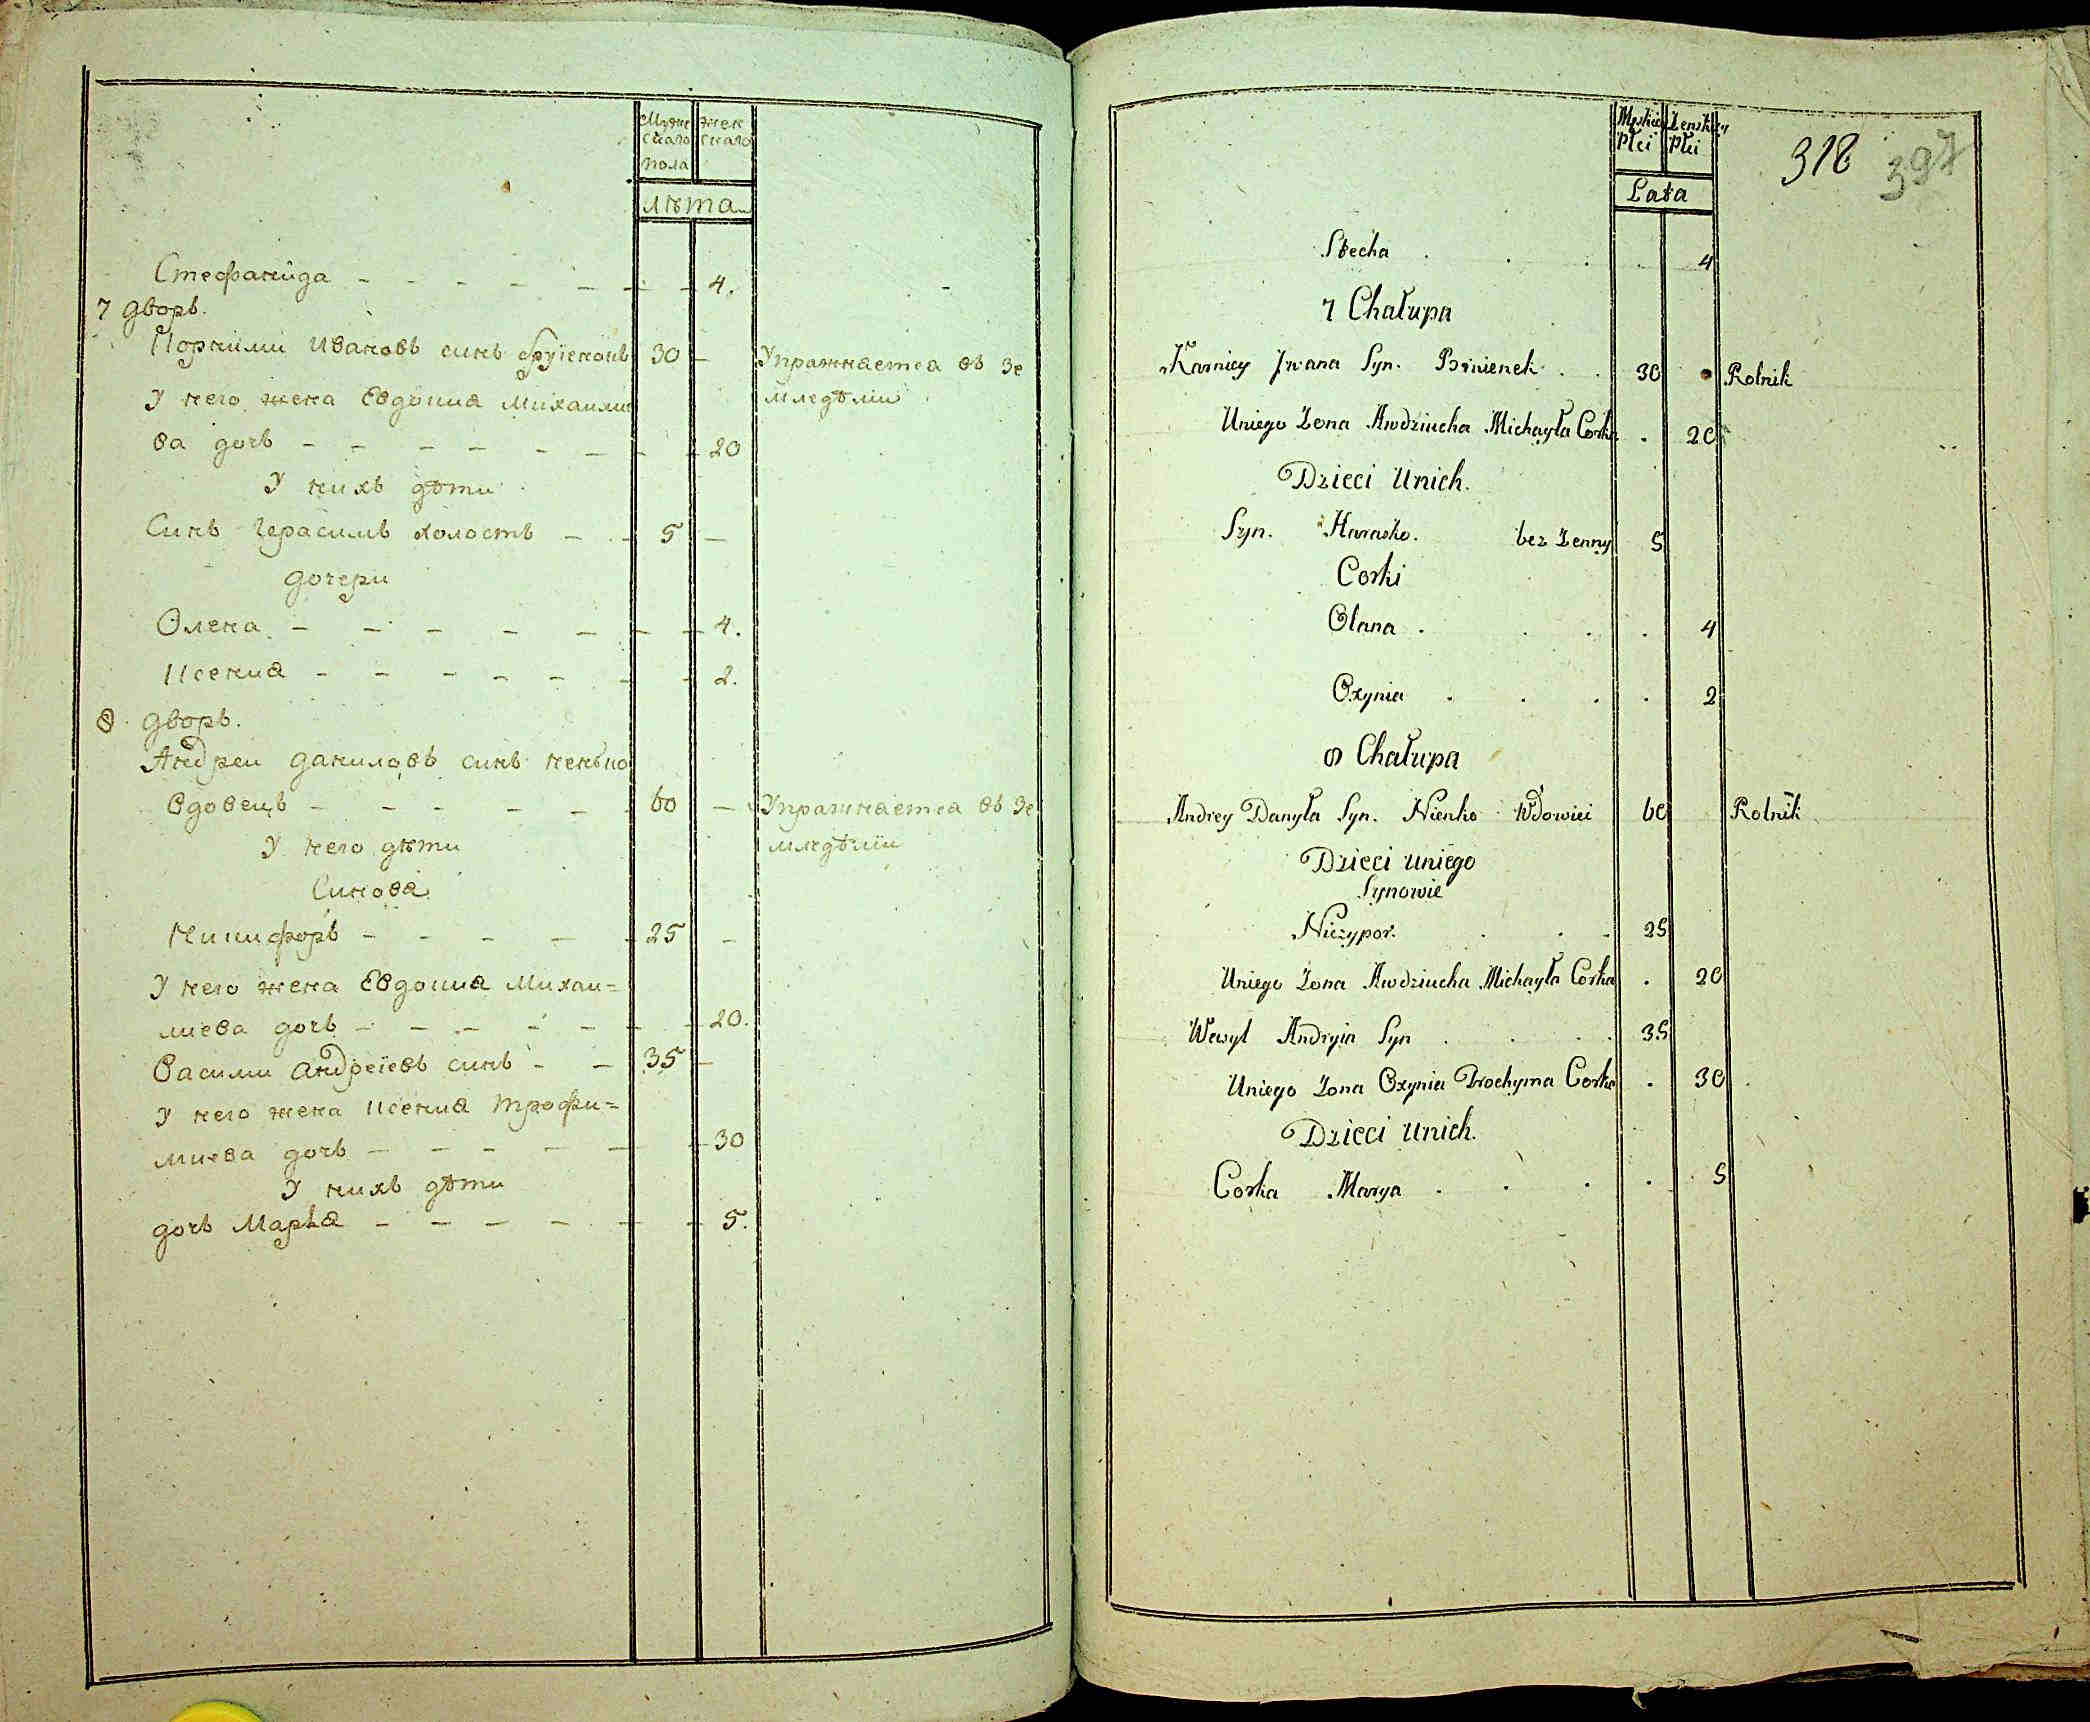 Муже
скаго
пола
жен
скаго
лѣта
Стефанида - - - - - - - 4.
7 дворъ.
Корнили Ивановъ синъ 30 - Упражнается въ Зе
У него жена Евдокиа Михаили мледѣлїи
ва дочь - - - - - - - 20
У нихъ дѣти
Синъ Герасимъ холостъ - - 5 -
дочери
Олена - - - - - - - 4.
Ксениа - - - - - - - 2.
8 дворъ.
Андреи даниловъ синъ ненько
Вдовецъ - - - - - - 60 - Упражнается въ Зе
У него дѣти мледѣлїи
Синовя
Никифоръ - - - - - 25 -
У него жена Евдокиа Михаи=
лиева дочь - - - - - - - 20.
Васили андреїевъ синъ - - 35 -
У него жена Ксениа трофи=
миева дочь - - - - - - 30
У нихъ дѣти
дочь Марья - - - - - - 5.
Męskiey
Płci
Żenskiey
Płci
318 397
Lata
Stecha . . . . 4
7 Chałupa
Karniey Jwana Syn. . . 30 Rolnik
Uniego Żona Awdziucha Michayła Corka . 20
Dzieci Unich.
Syn. Harasko. bez Żenny 5
Corki
Olana . . . . 4
Oxynia . . . . 2
8 Chałupa
Andrey Danyła Syn. Nienko Wdowiei 60 Rolnik
Dzieci uniego
Synowie
Niczypor. . . . 25
Uniego Żona Awdziucha Michayła Corka . 20
Wasyl Andryia Syn . . . . 35
Uniego Żona Oxynia Trochyma Corka . 30
Dzieci Unich.
Corka Marya . . . . 5